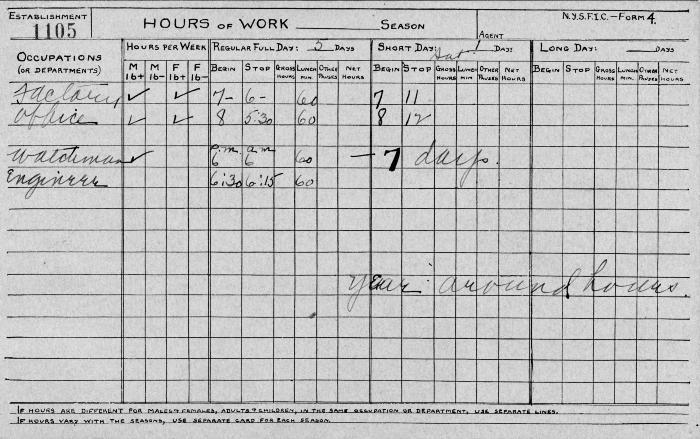 ESTABLISHMENT
1105
HOURS OF WORK ______ SEASON
AGENT
N.Y.S.F.I.C.—FORM 4.
OCCUPATIONS
(OR DEPARTMENTS)
HOURS PER WEEK
REGULAR FULL DAY: 5 DAYS
SHORT DAY: Sat 1 DAYS
LONG DAY: ___ DAYS
M 16+ M 16- F 16+ F 16- BEGIN STOP GROSS HOURS LUNCH MIN. OTHER PAUSES NET HOURS BEGIN STOP GROSS HOURS LUNCH MIN. OTHER PAUSES NET HOURS BEGIN STOP GROSS HOURS LUNCH MIN. OTHER PAUSES NET HOURS
Factory ✓ ✓ 7- 6- 60 7 11
Office ✓ ✓ 8 5:30 60 8 12
p.m. a.m
Watchman ✓ 6 6 60 — 7 days.
Engineer 6:30 6:15 60
Year around hours.
IF HOURS ARE DIFFERENT FOR MALES & FEMALES, ADULTS & CHILDREN, IN THE SAME OCCUPATION OR DEPARTMENT, USE SEPARATE LINES.
IF HOURS VARY WITH THE SEASONS, USE SEPARATE CARD FOR EACH SEASON.